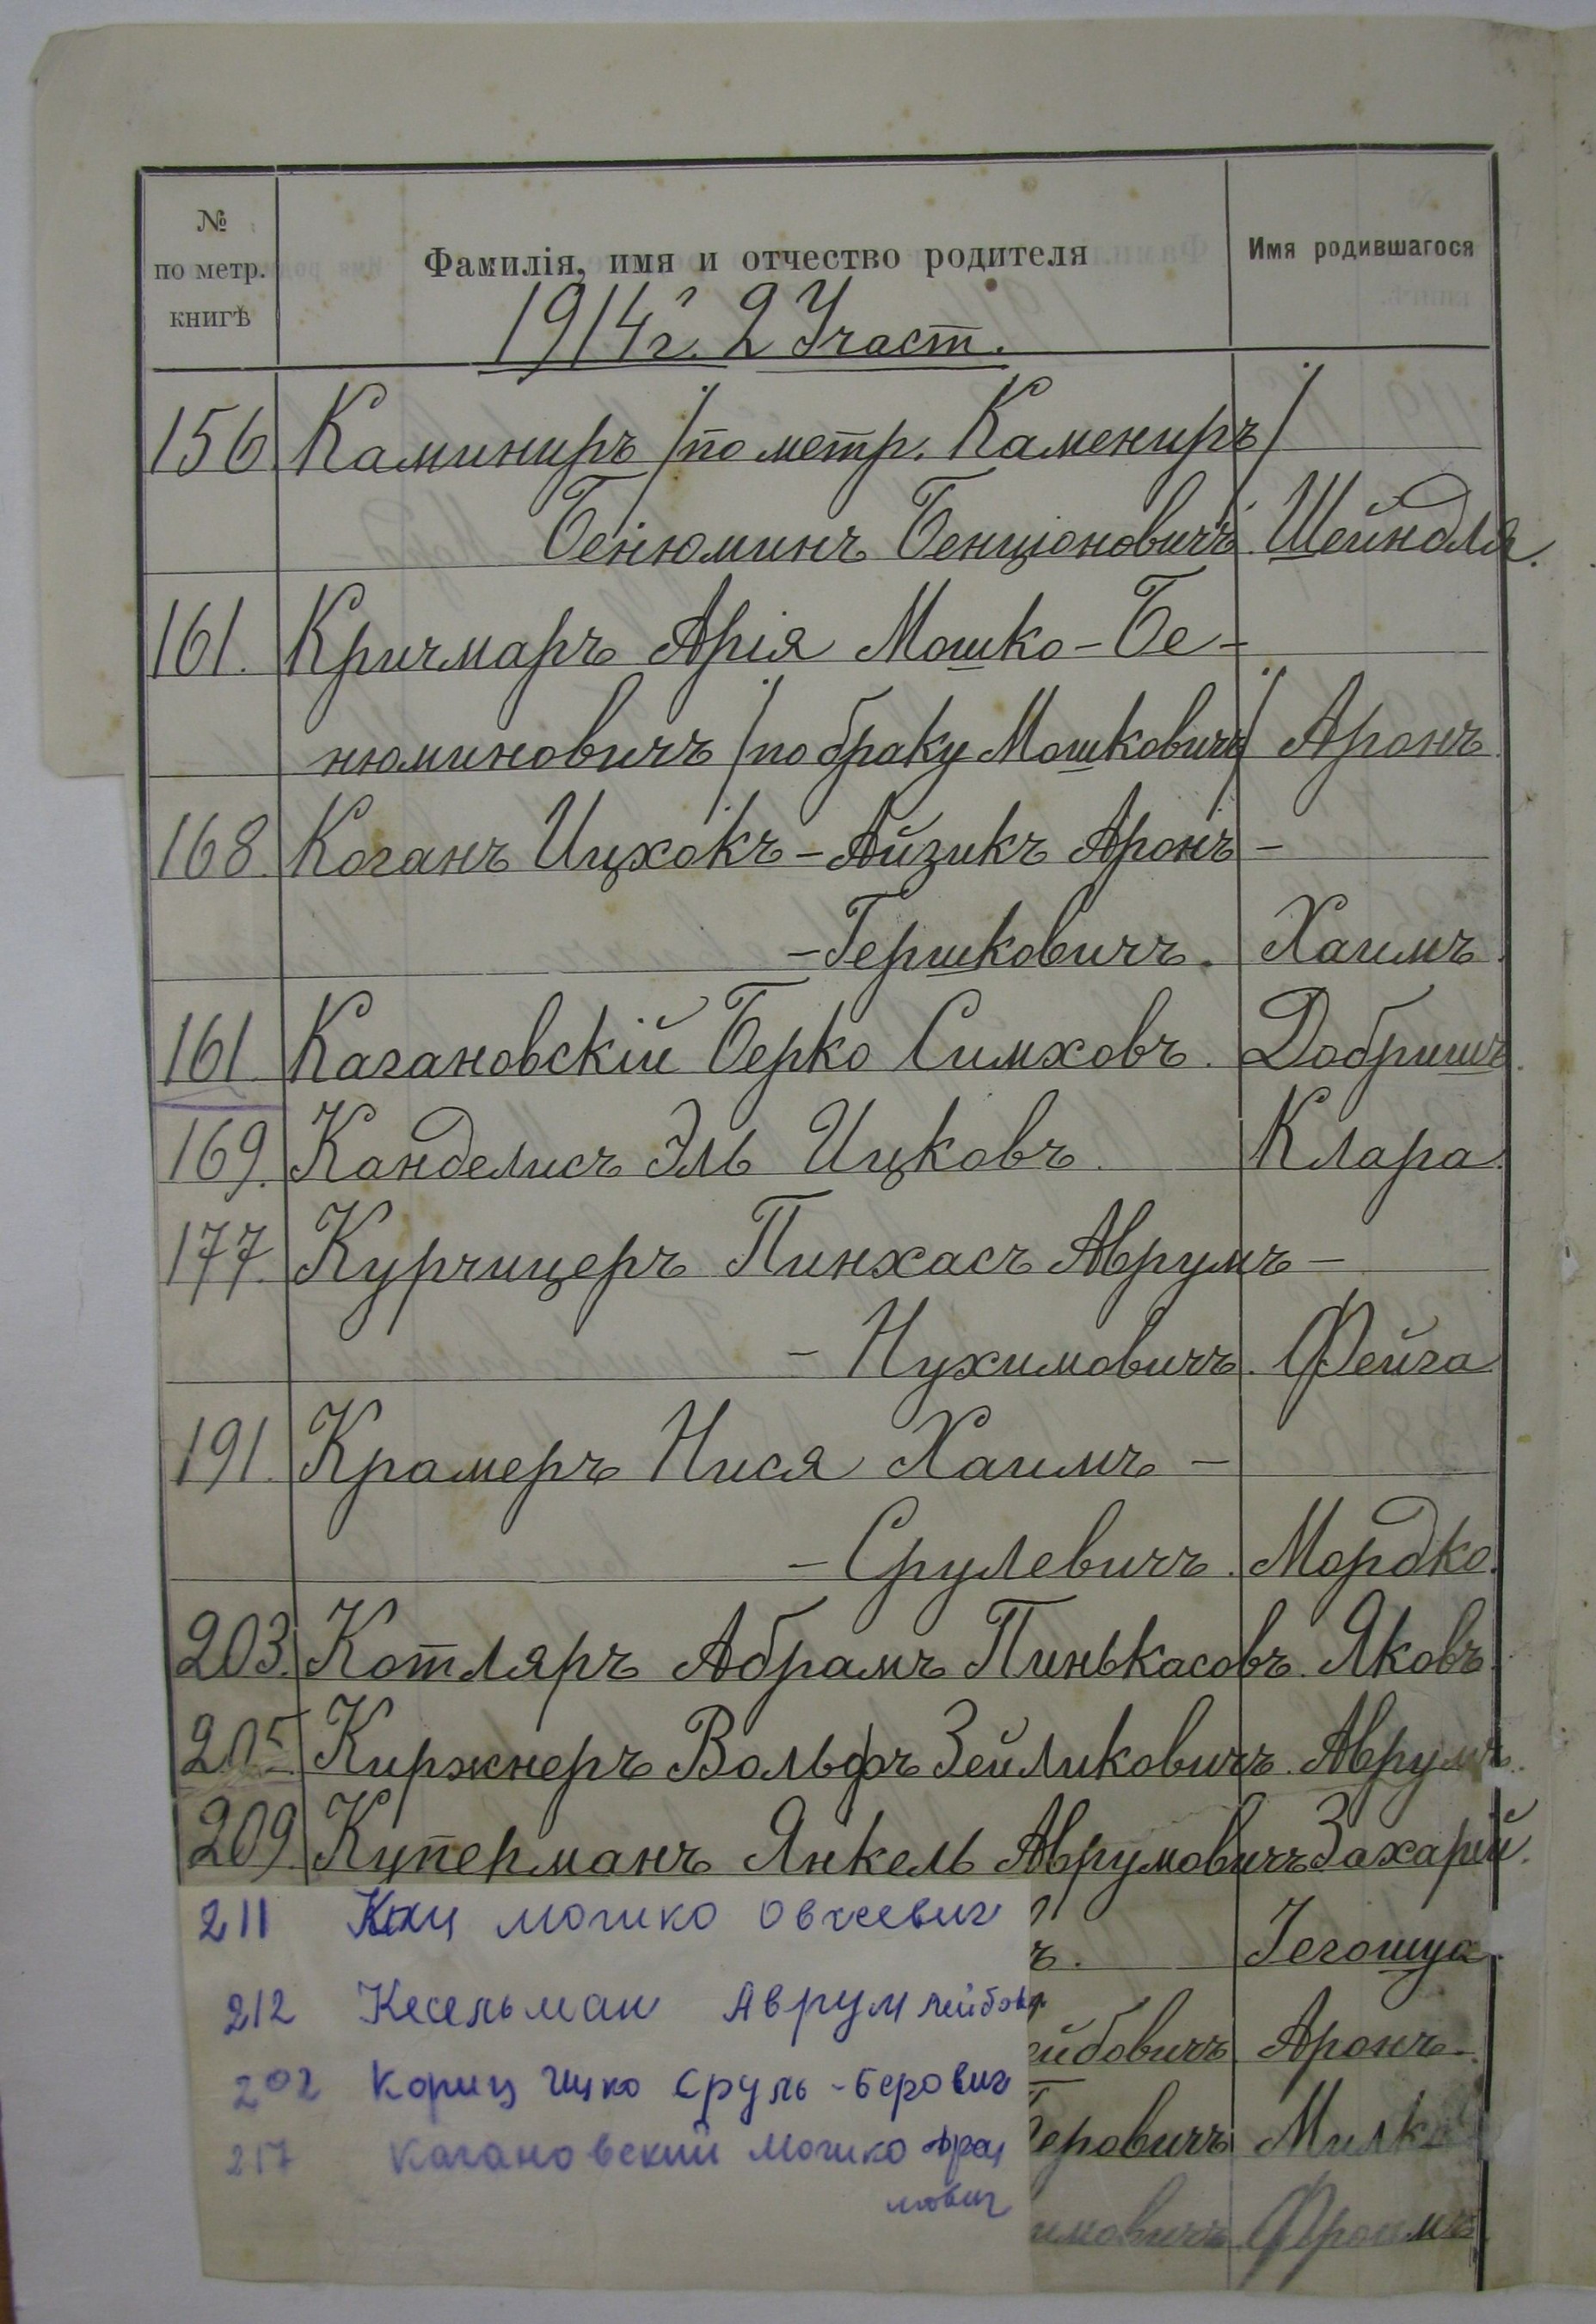 № по метр. книгѣ
Фамилія, имя и отчество родителя
Имя родившагося
1914 г. 2 Участ.
156. Каминиръ /по метр. Камениръ/
Бенюминъ Бенціоновичъ. Шейндля.
161. Кричмаръ Арія Мошко-Бе-
нюминовичъ /по браку Мошковичъ/ Аронъ.
168. Коганъ Ицхокъ-Айзикъ Аронъ-
-Гершковичъ. Хаимъ.
161. Кагановскій Берко Симховъ. Добришъ.
169. Канделисъ Эль Ицковъ. Клара.
177. Курчицеръ Пинхасъ Аврумъ-
-Нухимовичъ. Фейга
191. Крамеръ Нися Хаимъ-
-Срулевичъ. Мордко.
203. Котляръ Абрамъ Пинькасовъ. Яковъ.
205. Киржнеръ Вольфъ Зейликовичъ. Аврумъ.
209. Куперманъ Янкель Аврумовичъ Захарій.
211 Мошко Овшевич ъ. Іегошуа.
212 Кесельман Аврум лейбов ейбовичъ Аронъ.
202 Кориц Ицко Сруль-Берович Беровичъ Милка
217 Кагановский Мошко Фрои
мович имовичъ. Фроимъ.